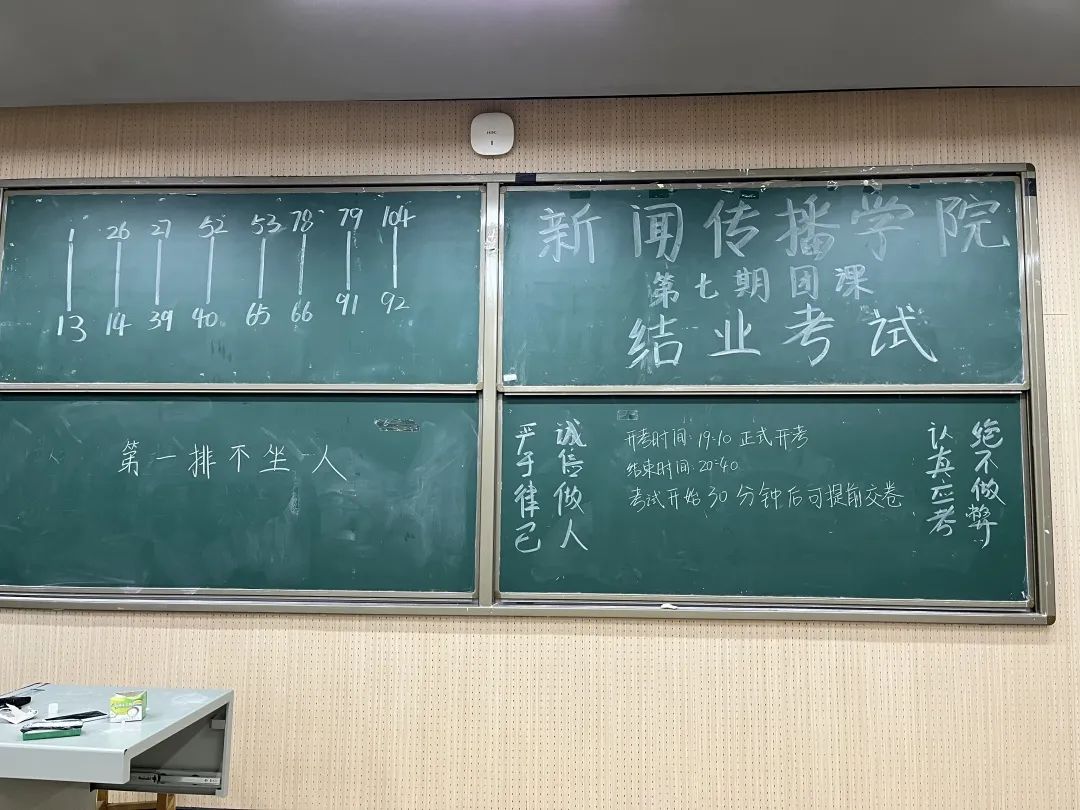 1 26 27 52 53 78 79 104
13 14 39 40 65 66 91 92
第一排不坐人
新闻传播学院
第七期团课
结业考试
诚信做人
严于律己
开考时间:19:10 正式开考
结束时间:20:40
考试开始30分钟后可提前交卷
绝不做弊
认真应考
H3C